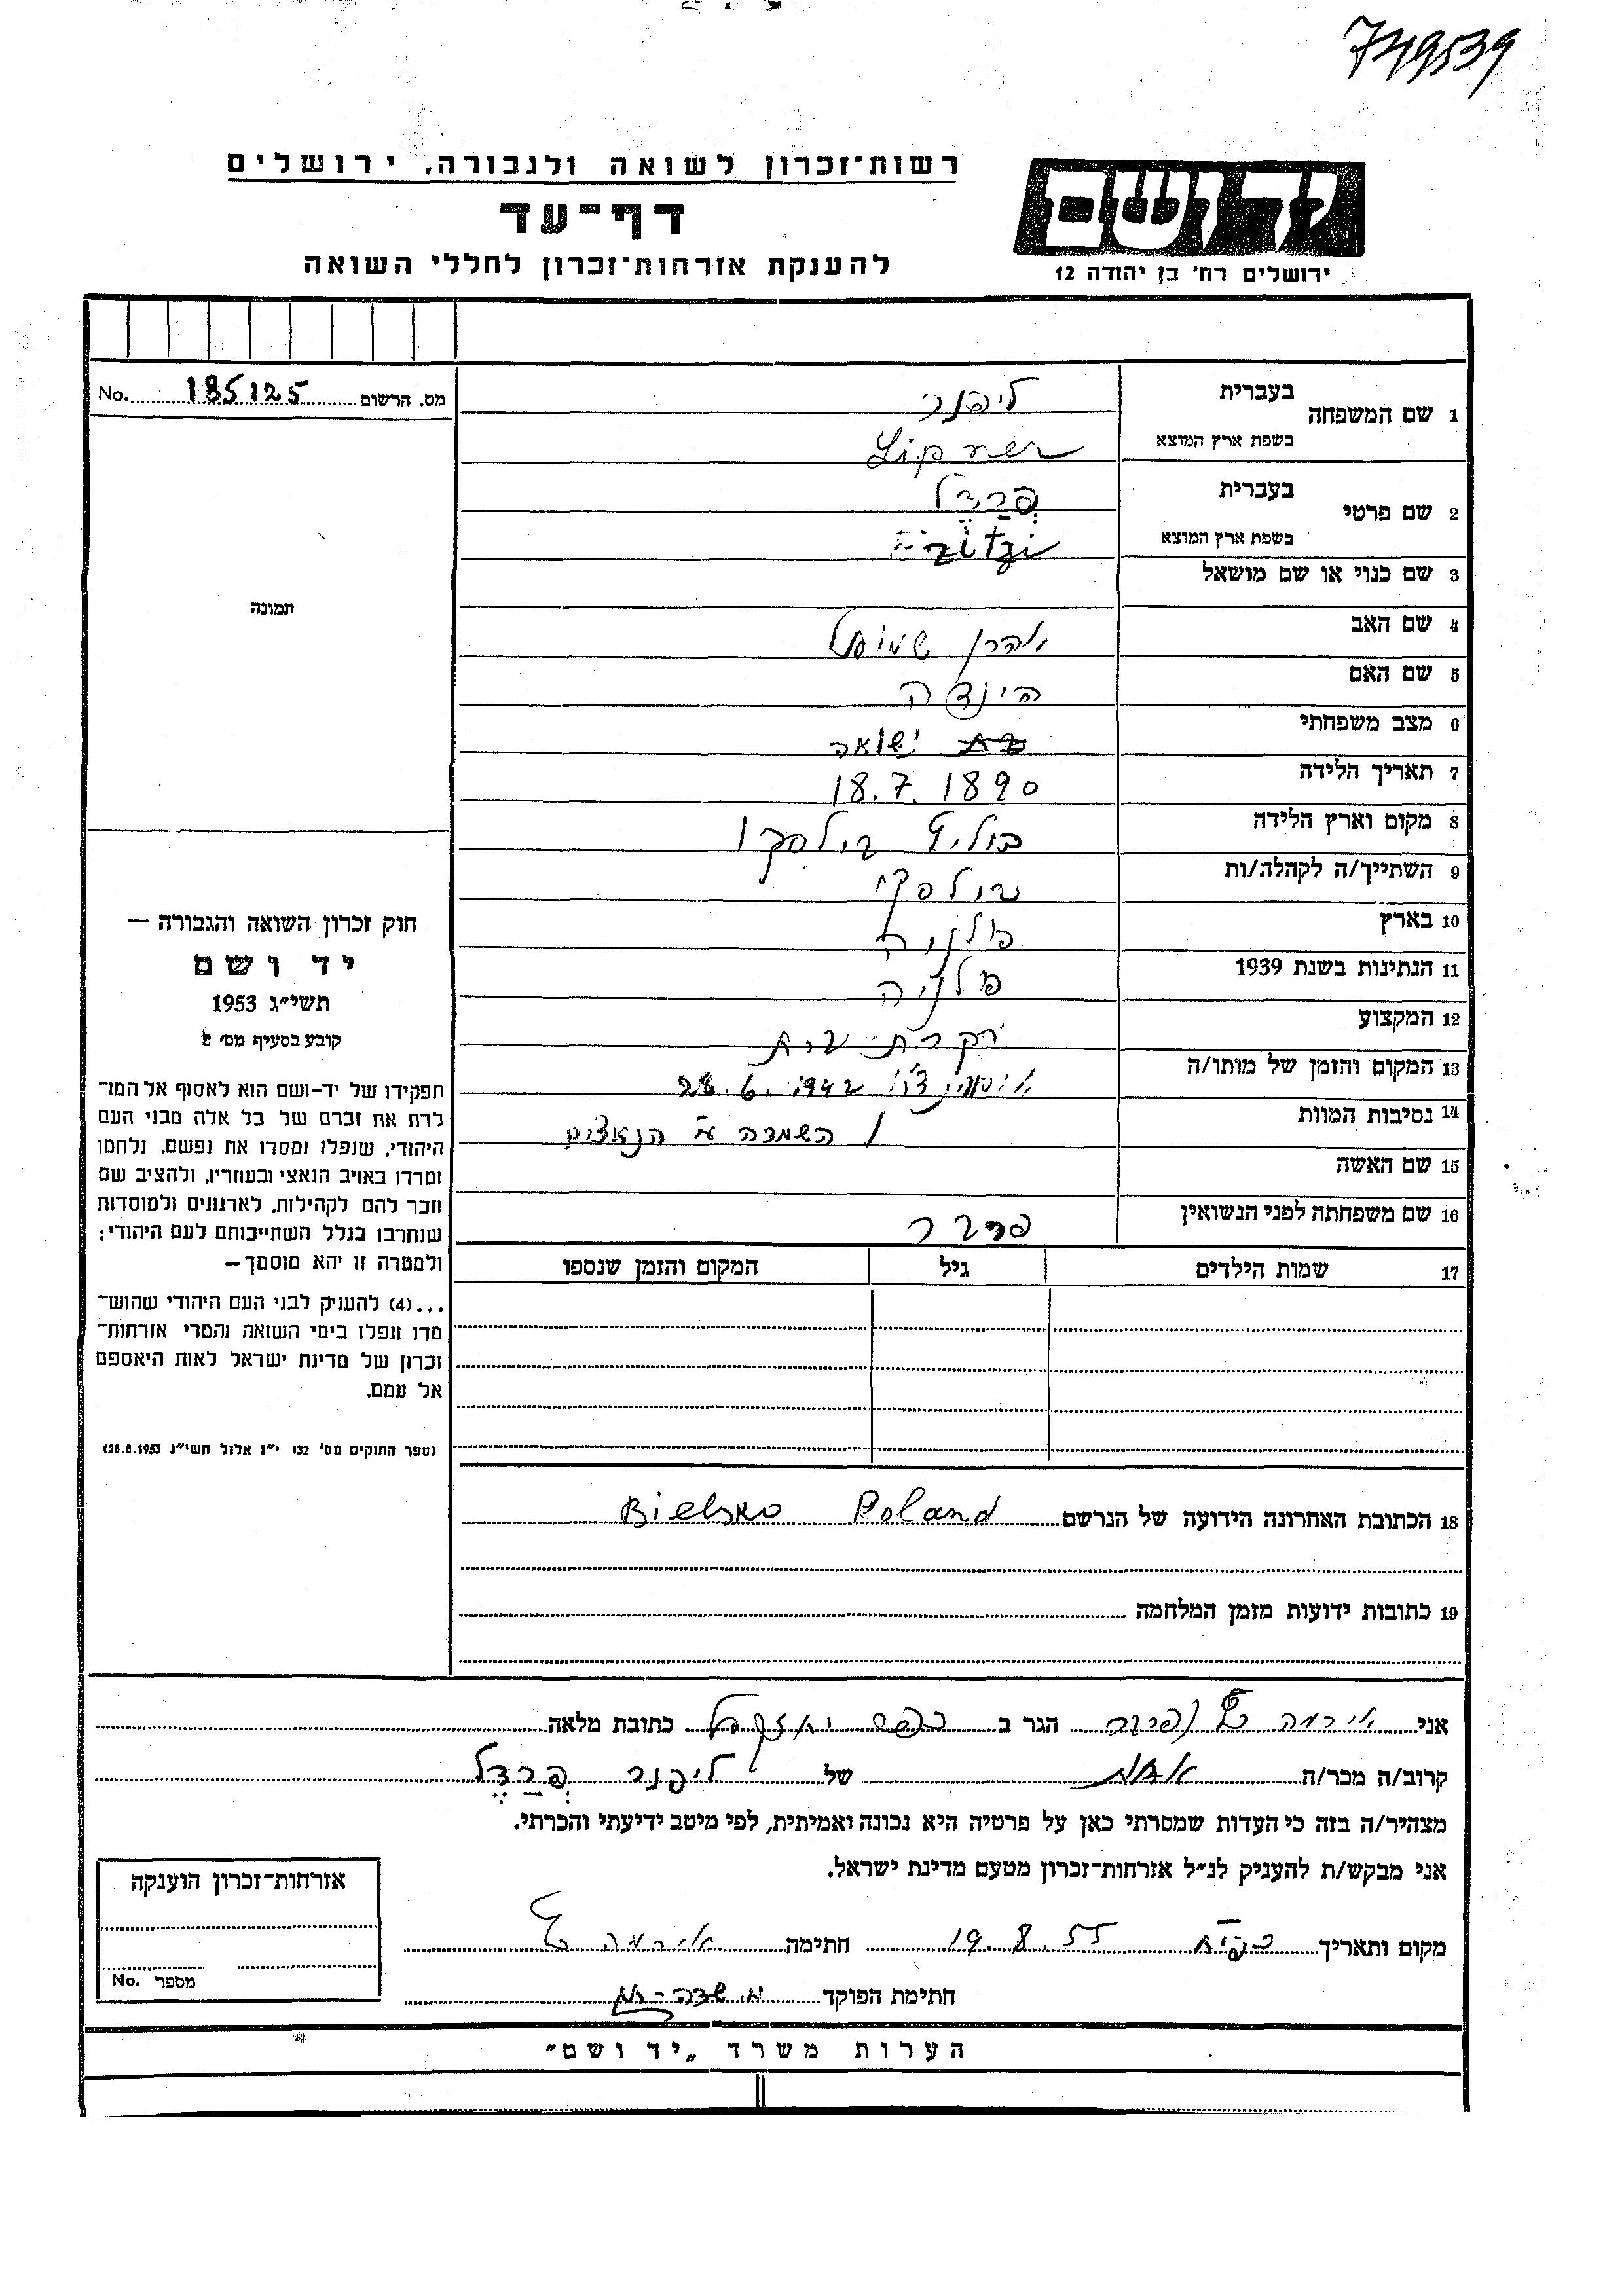 749539
רשות־זכרון לשואה ולגבורה, ירושלים
דף־עד
להענקת אזרחות־זכרון לחללי השואה
יד ושם
ירושלים רח' בן יהודה 12
מס. הרשום 185125 No.
1 שם המשפחה
בעברית ליפנר
בשפת ארץ המוצא Lipner
2 שם פרטי
בעברית פְרַדֶל
בשפת ארץ המוצא Fritzi
3 שם כנוי או שם מושאל
4 שם האב אהרן שמואל
5 שם האם הינדה
6 מצב משפחתי נשואה
7 תאריך הלידה 18.7.1890
8 מקום וארץ הלידה
9 השתייך/ה לקהלה/ות
10 בארץ פולניה
11 הנתינות בשנת 1939 פולניה
12 המקצוע עקרת בית
13 המקום והזמן של מותו/ה 28.6.1942
14 נסיבות המוות השמדה ע"י הנאצים
15 שם האשה
16 שם משפחתה לפני הנשואין פרבר
17 שמות הילדים
גיל
המקום והזמן שנספו
18 הכתובת האחרונה הידועה של הנרשם Bielsko Poland
19 כתובות ידועות מזמן המלחמה
תמונה
חוק זכרון השואה והגבורה —
יד ושם
תשי"ג 1953
קובע בסעיף מס' 2
תפקידו של יד-ושם הוא לאסוף אל המו־
לדת את זכרם של כל אלה מבני העם
היהודי, שנפלו ומסרו את נפשם, נלחמו
ומרדו באויב הנאצי ובעוזריו, ולהציב שם
וזכר להם לקהילות, לארגונים ולמוסדות
שנחרבו בגלל השתייכותם לעם היהודי;
ולמטרה זו יהא מוסמך—
...(4) להעניק לבני העם היהודי שהוש־
מדו ונפלו בימי השואה והמרי אזרחות־
זכרון של מדינת ישראל לאות היאספם
אל עמם.
(ספר החוקים מס' 132 י"ז אלול תשי"ג 28.8.1953)
אני אירמה הגר ב כפר יחזקאל כתובת מלאה
קרוב/ה מכר/ה אחות של ליפנר פְרַדֶל
מצהיר/ה בזה כי העדות שמסרתי כאן על פרטיה היא נכונה ואמיתית, לפי מיטב ידיעתי והכרתי.
אני מבקש/ת להעניק לנ"ל אזרחות־זכרון מטעם מדינת ישראל.
מקום ותאריך 19.8.55 חתימה אירמה
חתימת הפוקד
אזרחות־זכרון הוענקה
מספר No.
הערות משרד „יד ושם"